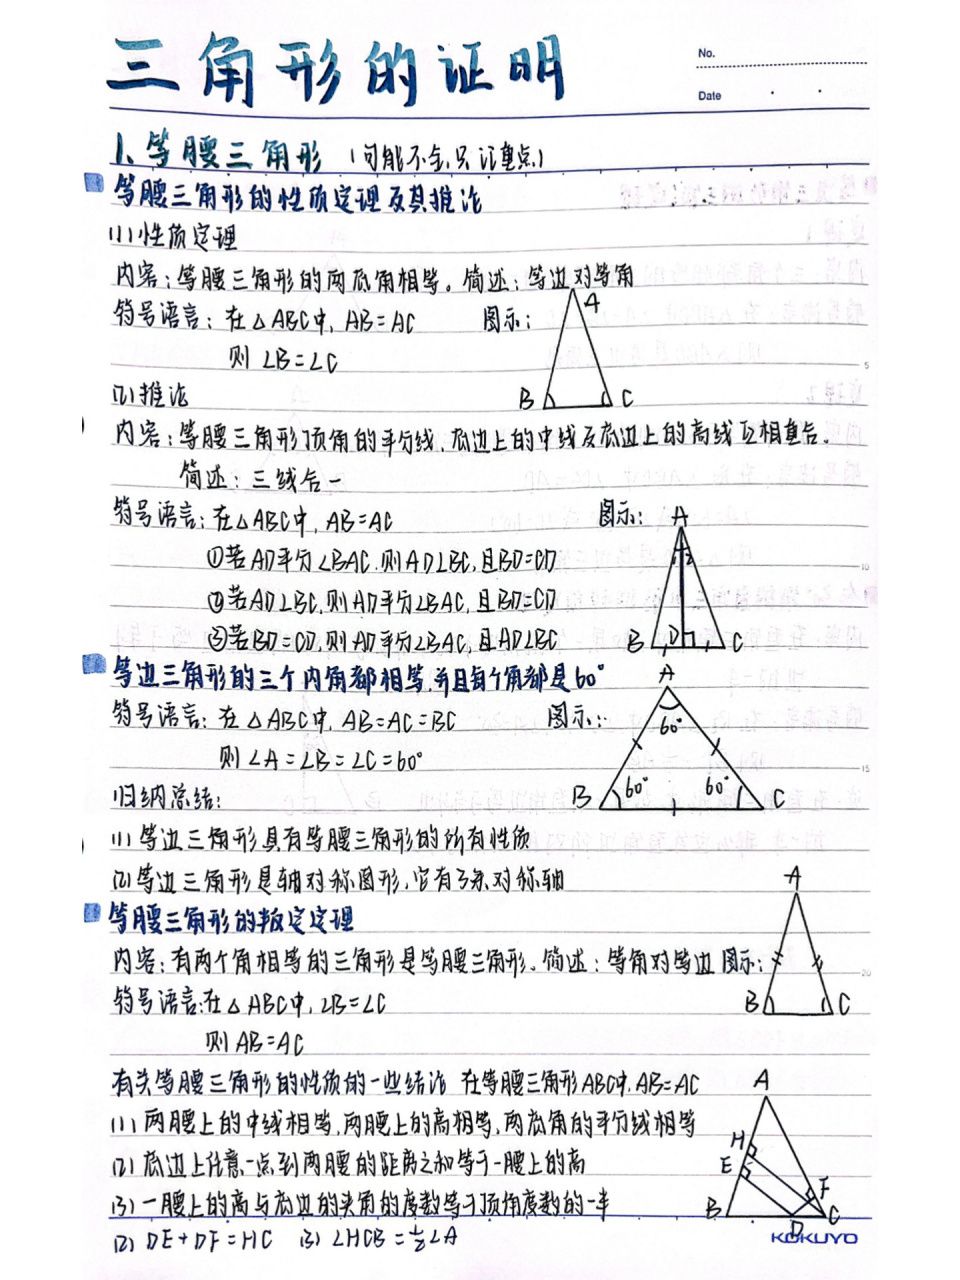 三角形的证明
No.
Date
1.等腰三角形 (可能不全,只记重点)
等腰三角形的性质定理及其推论
(1)性质定理
内容:等腰三角形的两底角相等。简述:等边对等角
符号语言:在△ABC中, AB=AC 图示:
则∠B=∠C
A
B C
(2)推论
内容:等腰三角形顶角的平分线、底边上的中线及底边上的高线互相重合。
简述:三线合一
符号语言:在△ABC中, AB=AC 图示:
①若AD平分∠BAC,则AD⊥BC,且BD=CD
②若AD⊥BC,则AD平分∠BAC,且BD=CD
③若BD=CD,则AD平分∠BAC,且AD⊥BC
A
1 2
B D C
等边三角形的三个内角都相等,并且每个角都是60°
符号语言:在△ABC中, AB=AC=BC 图示:
则∠A=∠B=∠C=60°
A
60°
B 60° 60° C
归纳总结:
(1)等边三角形具有等腰三角形的所有性质
(2)等边三角形是轴对称图形,它有3条对称轴
等腰三角形的叛定定理
内容:有两个角相等的三角形是等腰三角形。简述:等角对等边 图示:
符号语言:在△ABC中,∠B=∠C
则AB=AC
A
B C
有关等腰三角形的性质的一些结论 在等腰三角形ABC中,AB=AC
(1)两腰上的中线相等,两腰上的高相等,两底角的平分线相等
(2)底边上任意一点到两腰的距离之和等于一腰上的高
(3)一腰上的高与底边的夹角的度数等于顶角度数的一半
(2) DE+DF=HC (3) ∠HCB=½∠A
A
H
E
F
B D C
5
10
15
20
KOKUYO